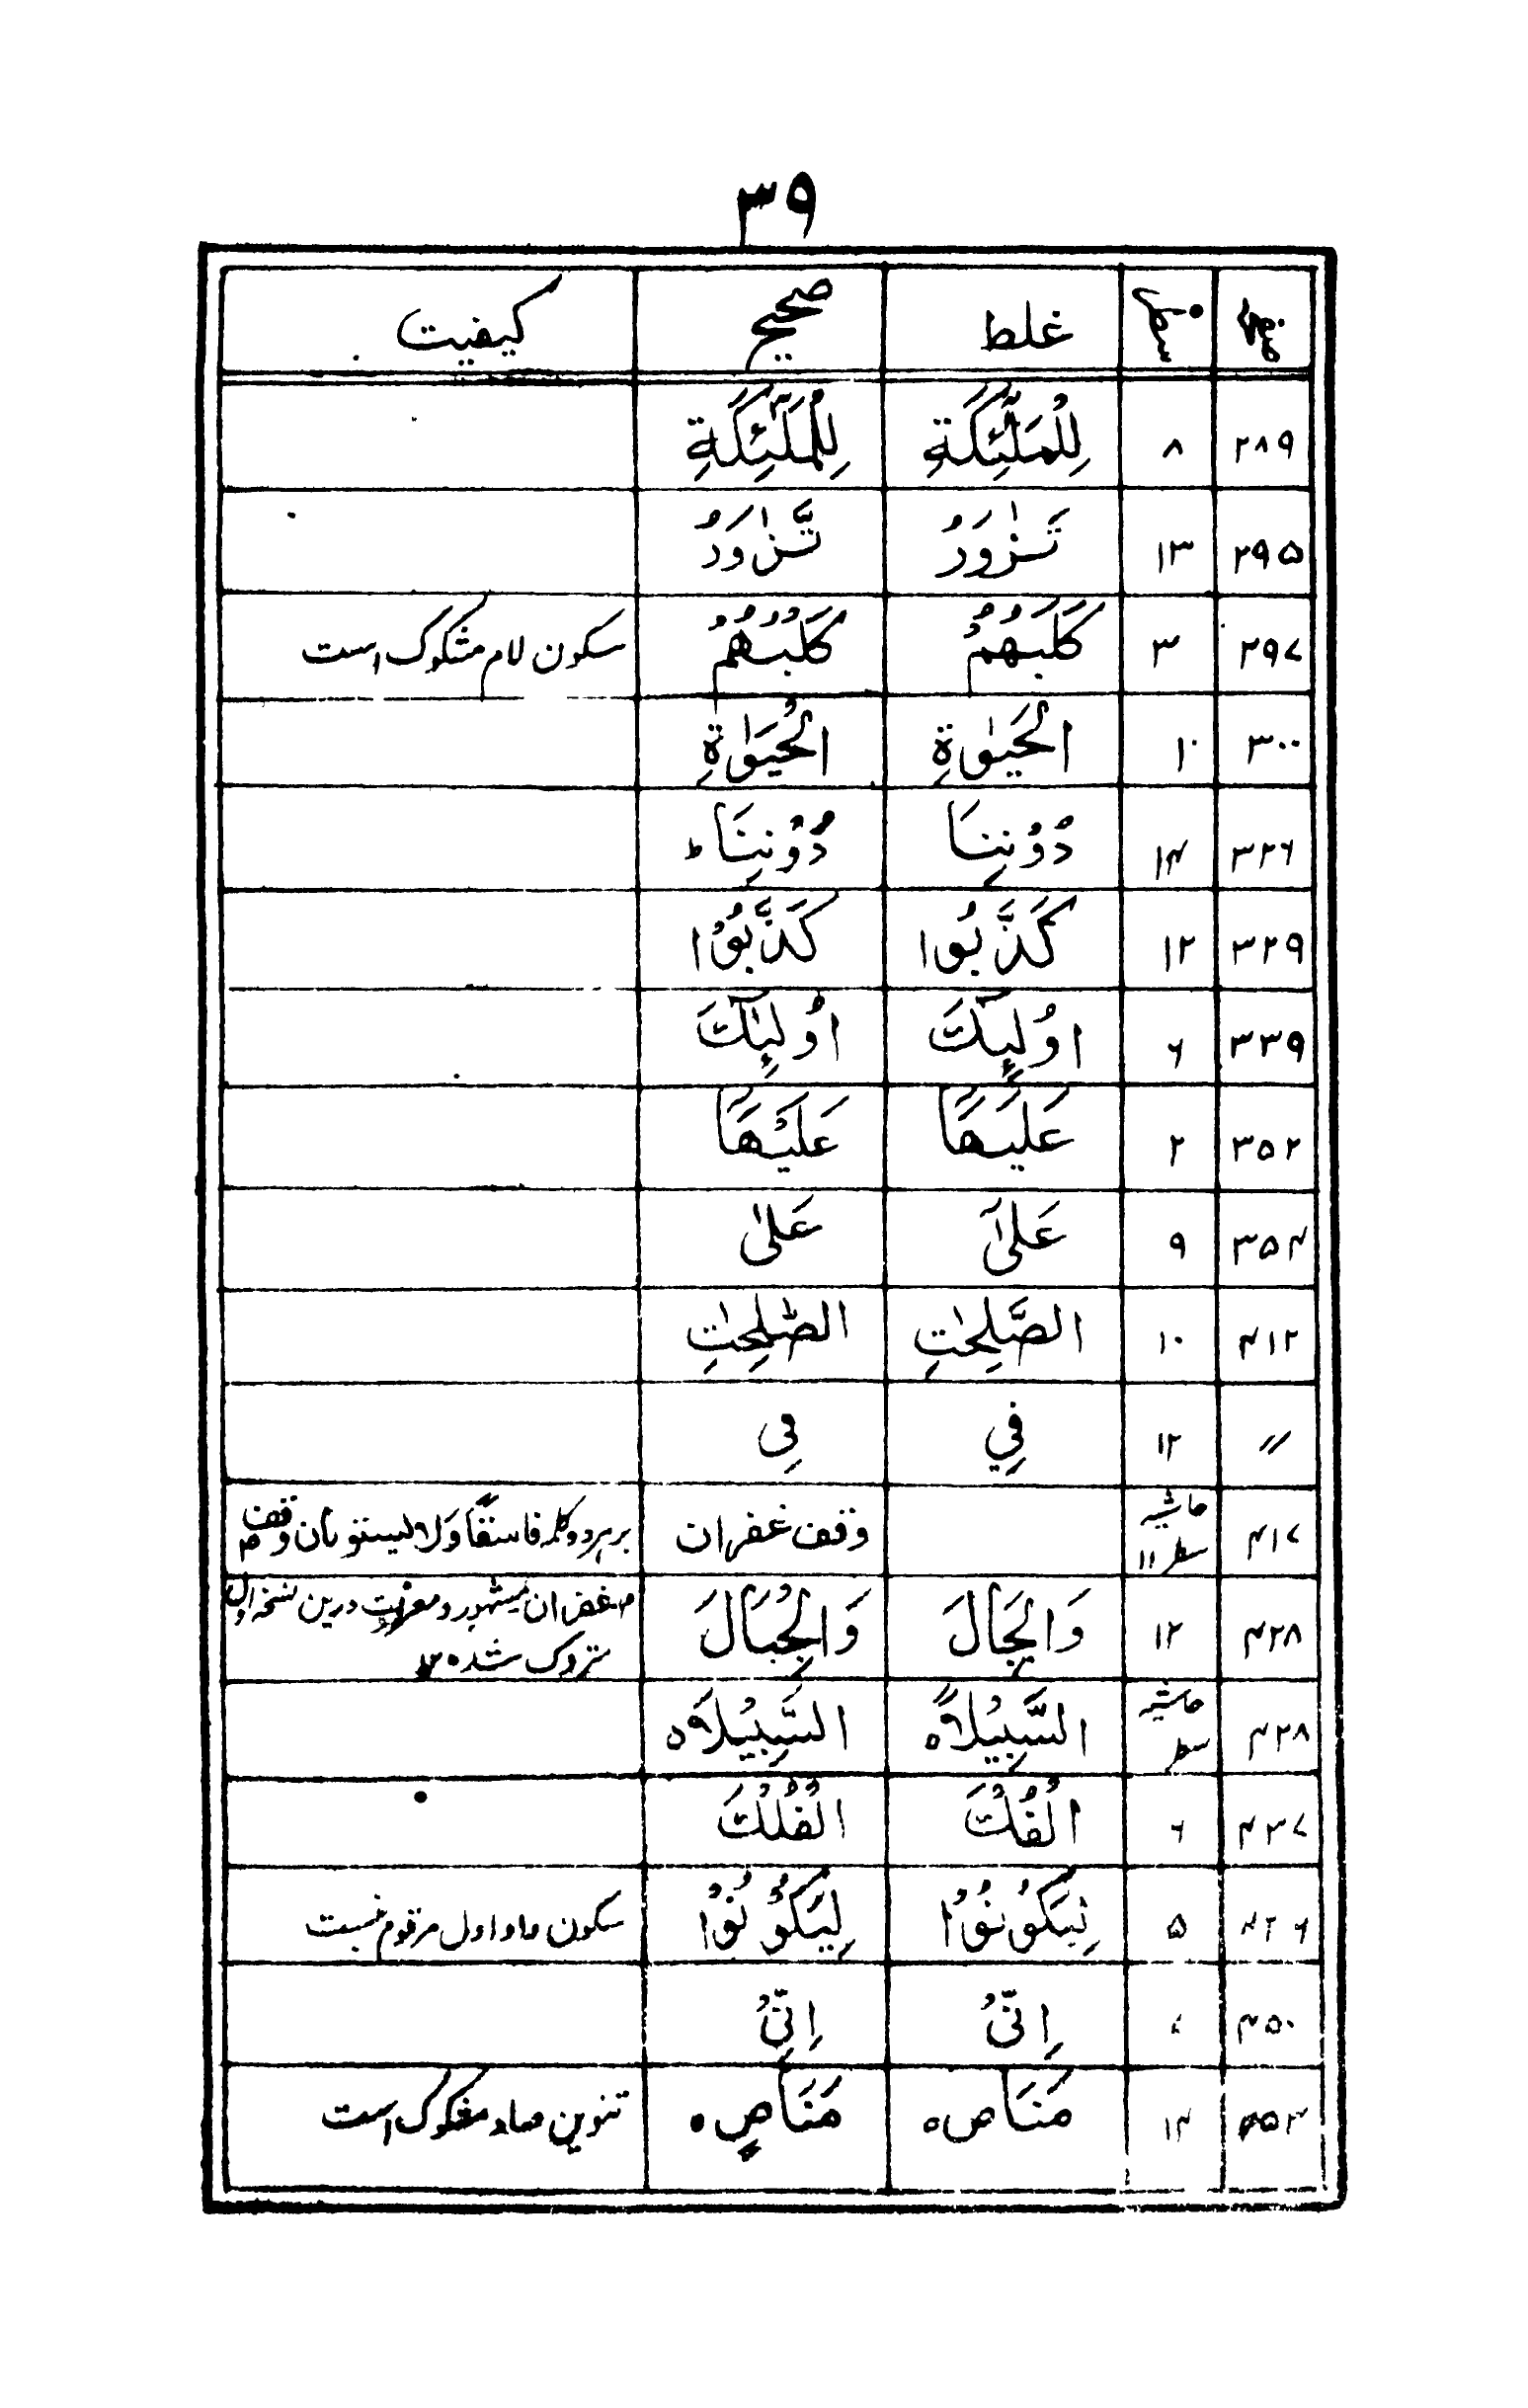 ۳۹
صفحہ سطر غلط صحیح کیفیت
۲۸۹ ۸ لِلْمَلٰٓئِكَةِ لِلْمَلٰٓئِكَةِ
۲۹۵ ۱۳ تَزٰوَرُ تَّزٰوَرُ
۲۹۷ ۳ كَلْبُهُمْ كَلْبُهُمْ سکون لام مشکوک است
۳۰۰ ۱۰ الْحَيٰوةِ الْحَيٰوةِ
۳۲۶ ۱۴ دُوْنِنَا دُوْنِنَا ط
۳۲۹ ۱۲ كَذَّبُوا كَذَّبُوْا
۳۳۹ ۶ اُولٰٓئِكَ اُولٰٓئِكَ
۳۵۲ ۲ عَلَيهَا عَلَيْهَا
۳۵۴ ۹ عَلٰٓى عَلٰى
۴۱۲ ۱۰ الصَّلِحٰتِ الصّٰلِحٰتِ
〃 ۱۲ فِي فِى
۴۱۷ حاشیہ سطر ۱۱ وقف غفران بر ہردو کلمہ فاسقًا ولا یستوٗن وقف
۴۲۸ ۱۲ وَالْجِبَالَ وَالْجِبَالَ غفران مشہور و معروفست درین نسخہ اول
متروک شدہ ۱۲
۴۲۸ حاشیہ سطر السَّبِيْلَا ہ السَّبِيْلَا ہ
۴۳۷ ۶ الْفُلْكَ الْفُلْكَ
۴۴۶ ۵ لِيَكُوْنُوْا لِيَكُوْنُوْا سکون واو اول مرقوم نیست
۴۵۰ ۷ اِنِّىْ اِنِّىْ
۴۵۳ ۱۴ مَنَاص ہ مَنَاصٍ ہ تنوین صاد مشکوک است